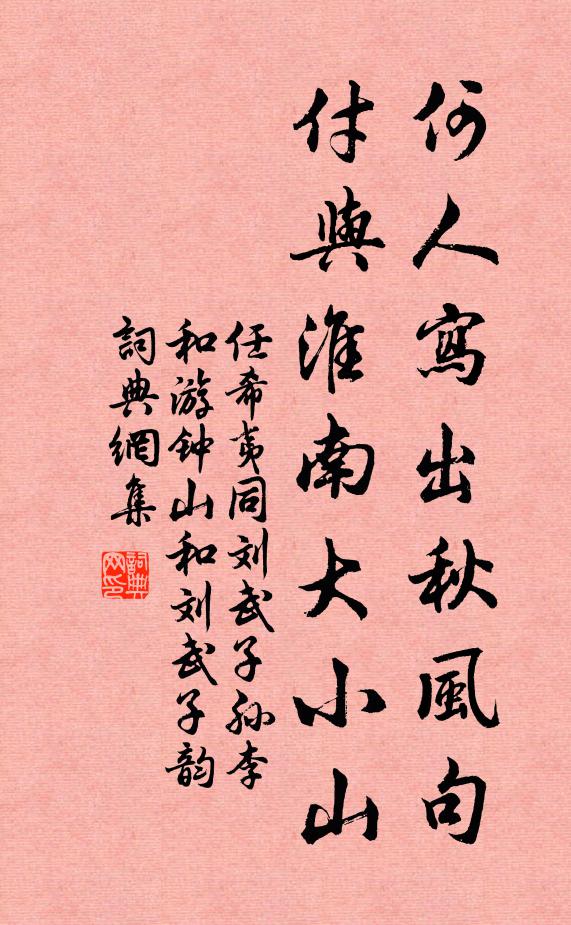 何人寫出秋風句
付與淮南大小山
任希夷同刘武子孙李
和游钟山和刘武子韵
詞典網集
詞典網印